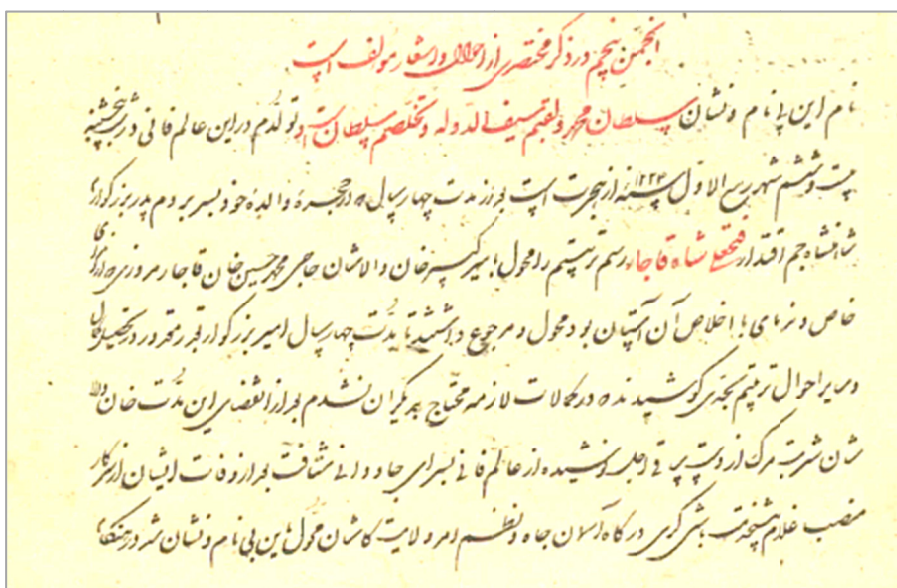 انجمن پنجم در ذکر مختصری از احوال و اشعار مولف است
نام این با نام و نشان سلطان محمد و لقبم سیف الدوله و تخلصم سلطان است و تولدم در این عالم فانی در شب پنجشنبه
بیست و ششم شهر ربیع الاول سنه ۱۲۲۸ از هجرت است بعد از مدت چهار سال که در حجرهٔ والدهٔ خود بسر بردم پدر بزرگوار
شاهنشاه جم اقتدار فتحعلی شاه قاجار رسم تربیتم را محول بامیر کبیر خان والاشان حاجی محمد حسین خان قاجار مروزی که از
خاص و نرمای با اخلاص آن آستان بود محول و مرجوع داشتند تا مدت چهار سال امیر بزرگوار قدر مقدور در تحصیل
و سایر احوال تربیتم بجدی کوشیدند که در کمالات لازمه محتاج بدیگران نشدم بعد از انقضای این مدت خان
شان شربت مرگ از دست ساقی اجل نوشیده از عالم فانی بسرای جاودانی شتافت بعد از وفات ایشان از سرکار
منصب غلام پیشخدمت باشی گری درگاه آسمان جاه و نظم امر ولایت کاشان محول باین بی نام و نشان شد